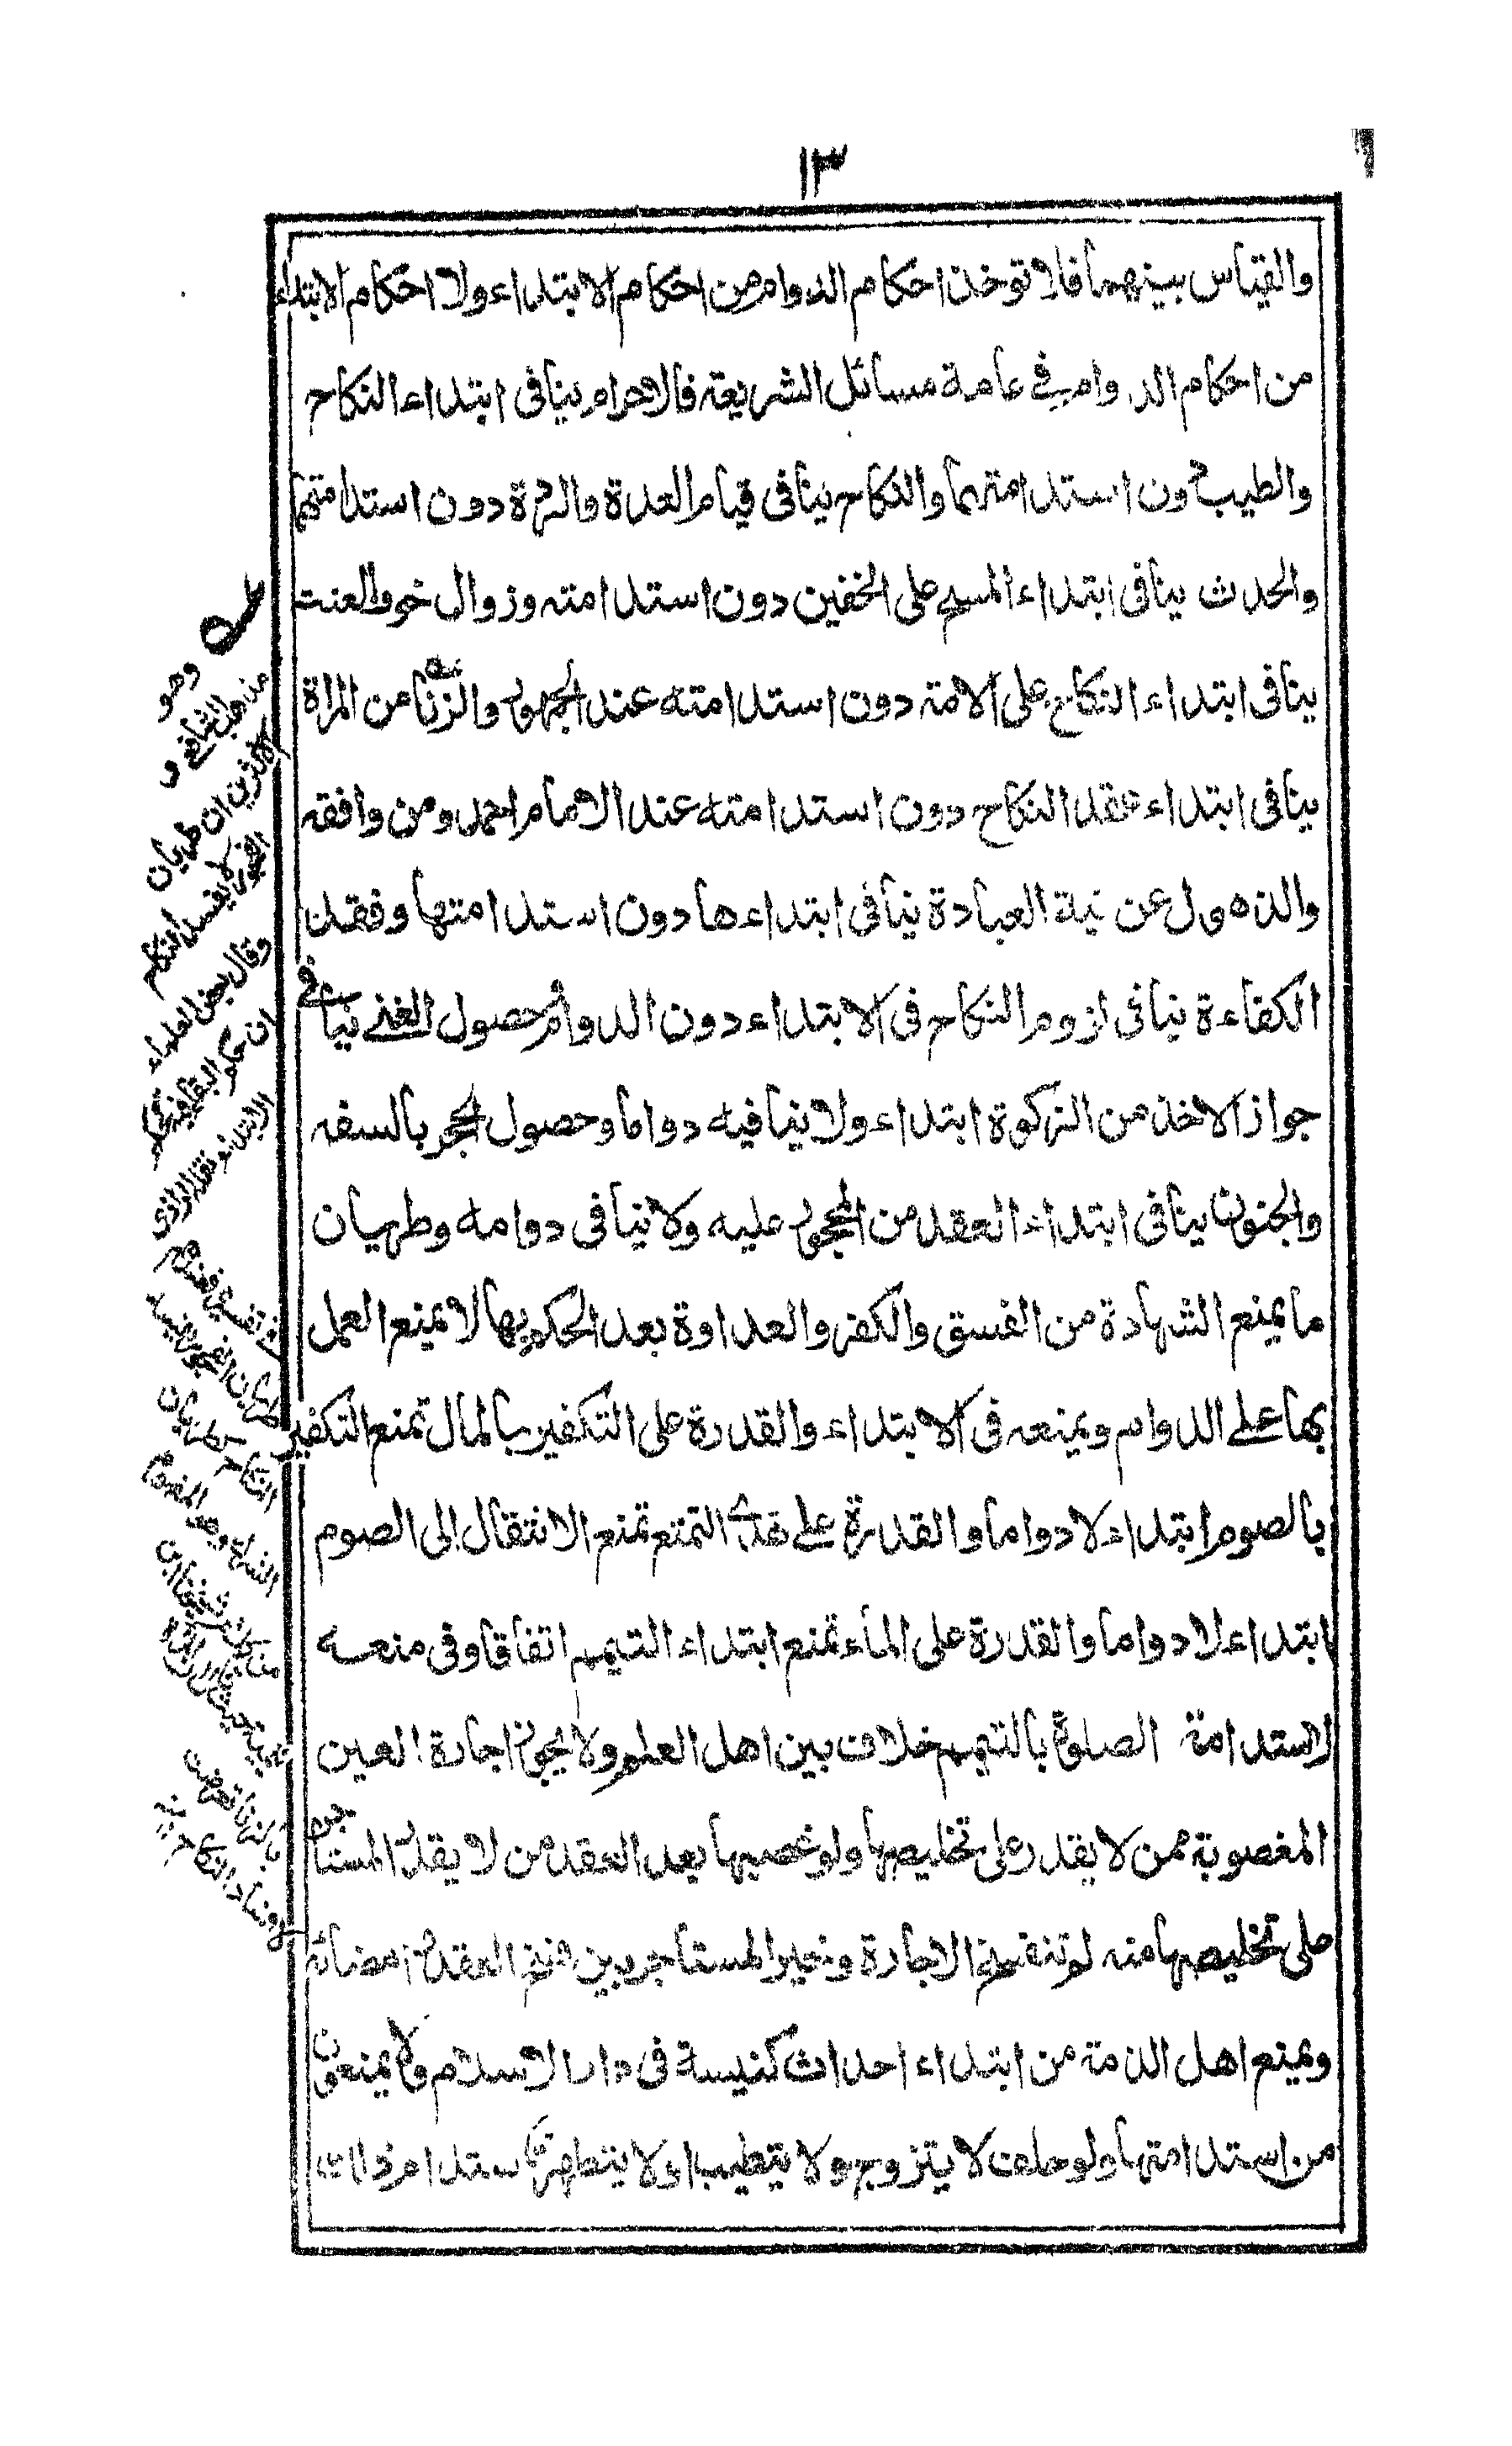 ١٣
والقياس بينهما فلا توخذ احكام الدوام من احكام الابتداء ولا احكام الابتداء
من احكام الدوام في عامة مسائل الشريعة فالاحرام ينافى ابتداء النكاح
والطيب دون استدامتهما والنكاح ينافى قيام العدة والردة دون استدامتهما
والحدث ينافى ابتداء المسح على الخفين دون استدامته وزوال خوف العنت
ينافى ابتداء النكاح على الامة دون استدامته عند الجمهور والزنا من المراة
ينافى ابتداء عقد النكاح دون استدامته عند الامام احمد ومن وافقه
والذهول عن نية العبادة ينافى ابتداءها دون استدامتها وفقد
الكفاءة ينافى لزوم النكاح فى الابتداء دون الدوام وحصول الغنى ينافى
جواز الاخذ من الزكوة ابتداء ولا ينافيه دواما وحصول الحجر بالسفه
والجنون ينافى ابتداء العقد من المحجور عليه ولا ينافى دوامه وطريان
ما يمنع الشهادة من الفسق والكفر والعداوة بعد الحكم بها لا يمنع العمل
بها على الدوام ويمنعه فى الابتداء والقدرة على التكفير بالمال تمنع التكفير
بالصوم ابتداء لا دواما والقدرة على هدى التمتع تمنع الانتقال الى الصوم
ابتداء لا دواما والقدرة على الماء تمنع ابتداء التيمم اتفاقا وفى منعه
لاستدامة الصلوة بالتيمم خلاف بين اهل العلم ولا يجوز اجارة العين
المغصوبة ممن لا يقدر على تخليصها ولو غصبها بعد العقد من لا يقدر المستاجر
على تخليصها منه لم تنفسخ الاجارة وخير المستاجر بين فسخ العقد وامضائه
ويمنع اهل الذمة من ابتداء احداث كنيسة فى دار الاسلام ولا يمنعون
من استدامتها ولو حلف لا يتزوج ولا يتطيب او لا يتطهر فاستدام ذلك
وهو
مذهب الشافعى و
الاكثرين ان طريان
الفجور لا يفسد النكاح
وقال بعض العلماء
ان حكم البقاء حكم
الابتداء نقله الرازى